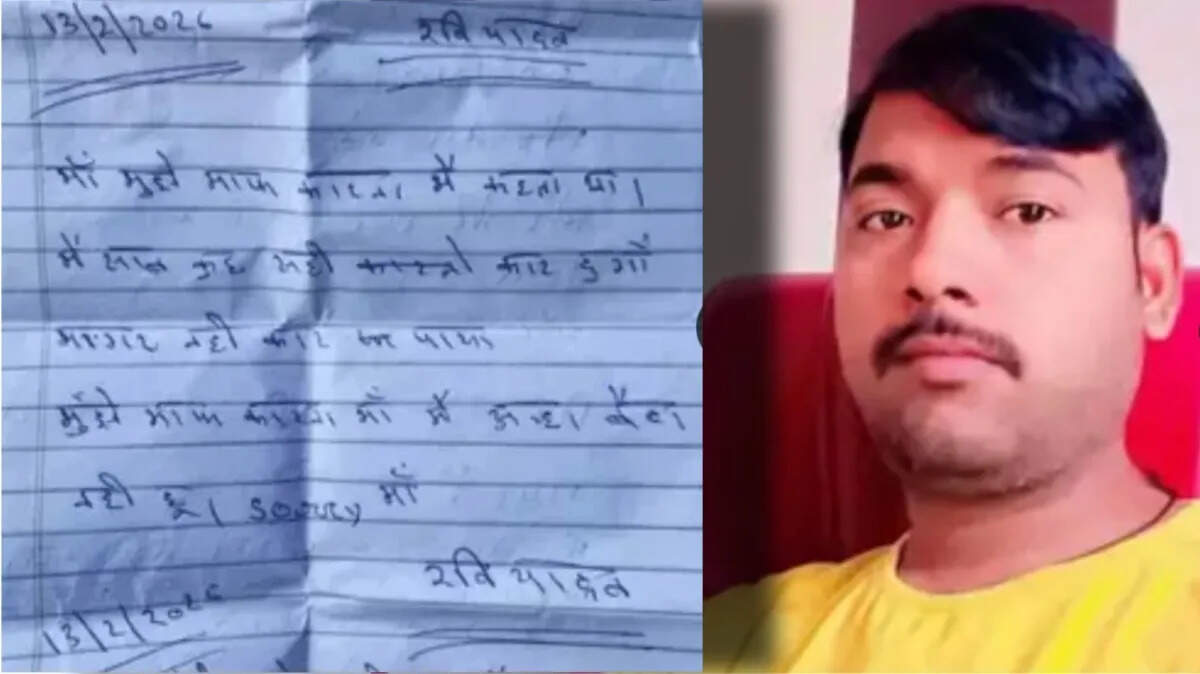 13/2/2026 रवि यादव
माँ मुझे माफ कारना मैं कहता था।
मैं साब कुछ सही कारतो कार दुगाँ
मागार नही कार पाया
मुँझे माफ कारना माँ मैं अच्छा बैटा
नही हू। Sorry माँ
रवि यादव
13/2/2026